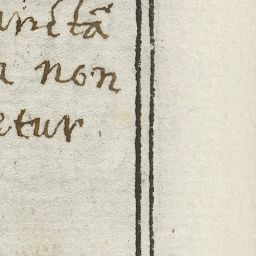 anctã
a non
etur